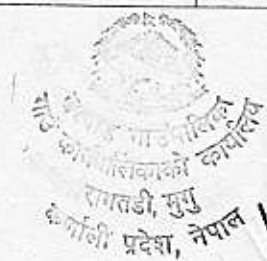 गाउँपालिका
गाउँ कार्यपालिकाको कार्यालय
मुगु
कर्णाली प्रदेश, नेपाल